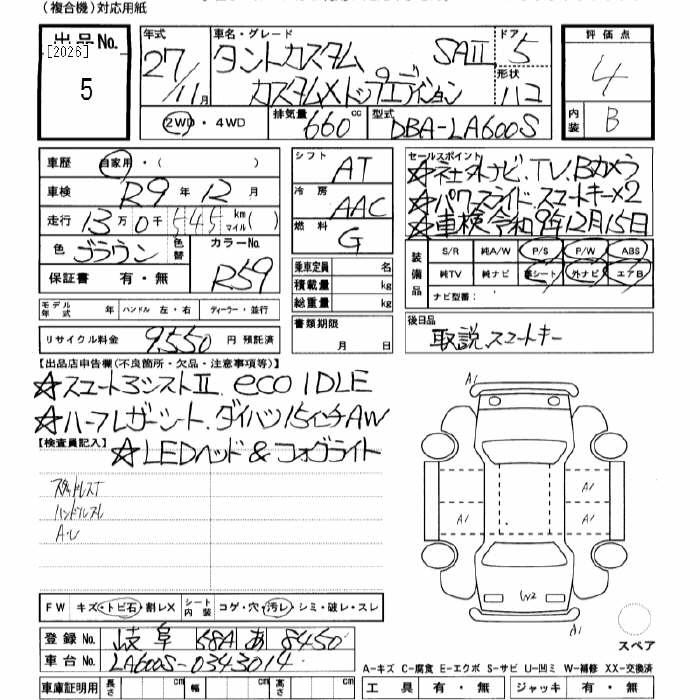 （複合機）対応用紙
出品No.
[2026]
5
年式
27/11月
車名・グレード
タントカスタム SAⅡ
カスタムXトップエディション
ドア
5
形状
ハコ
2WD・4WD
排気量 660 cc
型式 DBA-LA600S
評価点
4
内装
B
車歴 自家用・（ ）
車検 R9年12月
走行 13万0千545km（ ）マイル
色 ブラウン 色替
カラーNo. R59
保証書 有・無
シフト AT
冷房 AAC
燃料 G
乗車定員 名
積載量 kg
総重量 kg
セールスポイント
☆社外ナビ.TV.Bカメラ
☆パワースライド.スマートキー×2
☆車検令和9年12月15日
装備品
S/R 純A/W P/S P/W ABS
純TV 純ナビ 革シート 外ナビ エアB
ナビ型番：
モデル年式 年 ハンドル 左・右 ディーラー・並行
リサイクル料金 9,550 円 預託済
書類期限
月 日
後日品
取説.スマートキー
【出品店申告欄（不良箇所・欠品・注意事項等）】
☆スマートアシストⅡ. eco IDLE
☆ハーフレザーシート.ダイハツ15インチAW
【検査員記入】
☆LEDヘッド&フォグライト
ハンドルスレ
A・U
A1
A1
A1
A1
A1
W2
A1
スペア
FW キズ・トビ石・割レX
シート内装 コゲ・穴・汚レ・シミ・破レ・スレ
登録No. 岐阜 581 あ 8450
車台No. LA600S-0343014
車庫証明用 長さ cm 幅 cm 高さ cm
A-キズ C-腐食 E-エクボ S-サビ U-凹ミ W-補修 XX-交換済
工具 有・無 ジャッキ 有・無